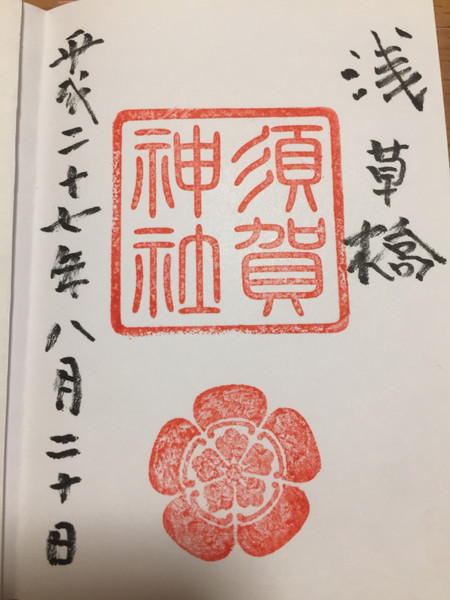 浅草橋
須賀
神社
平成二十七年八月二十日